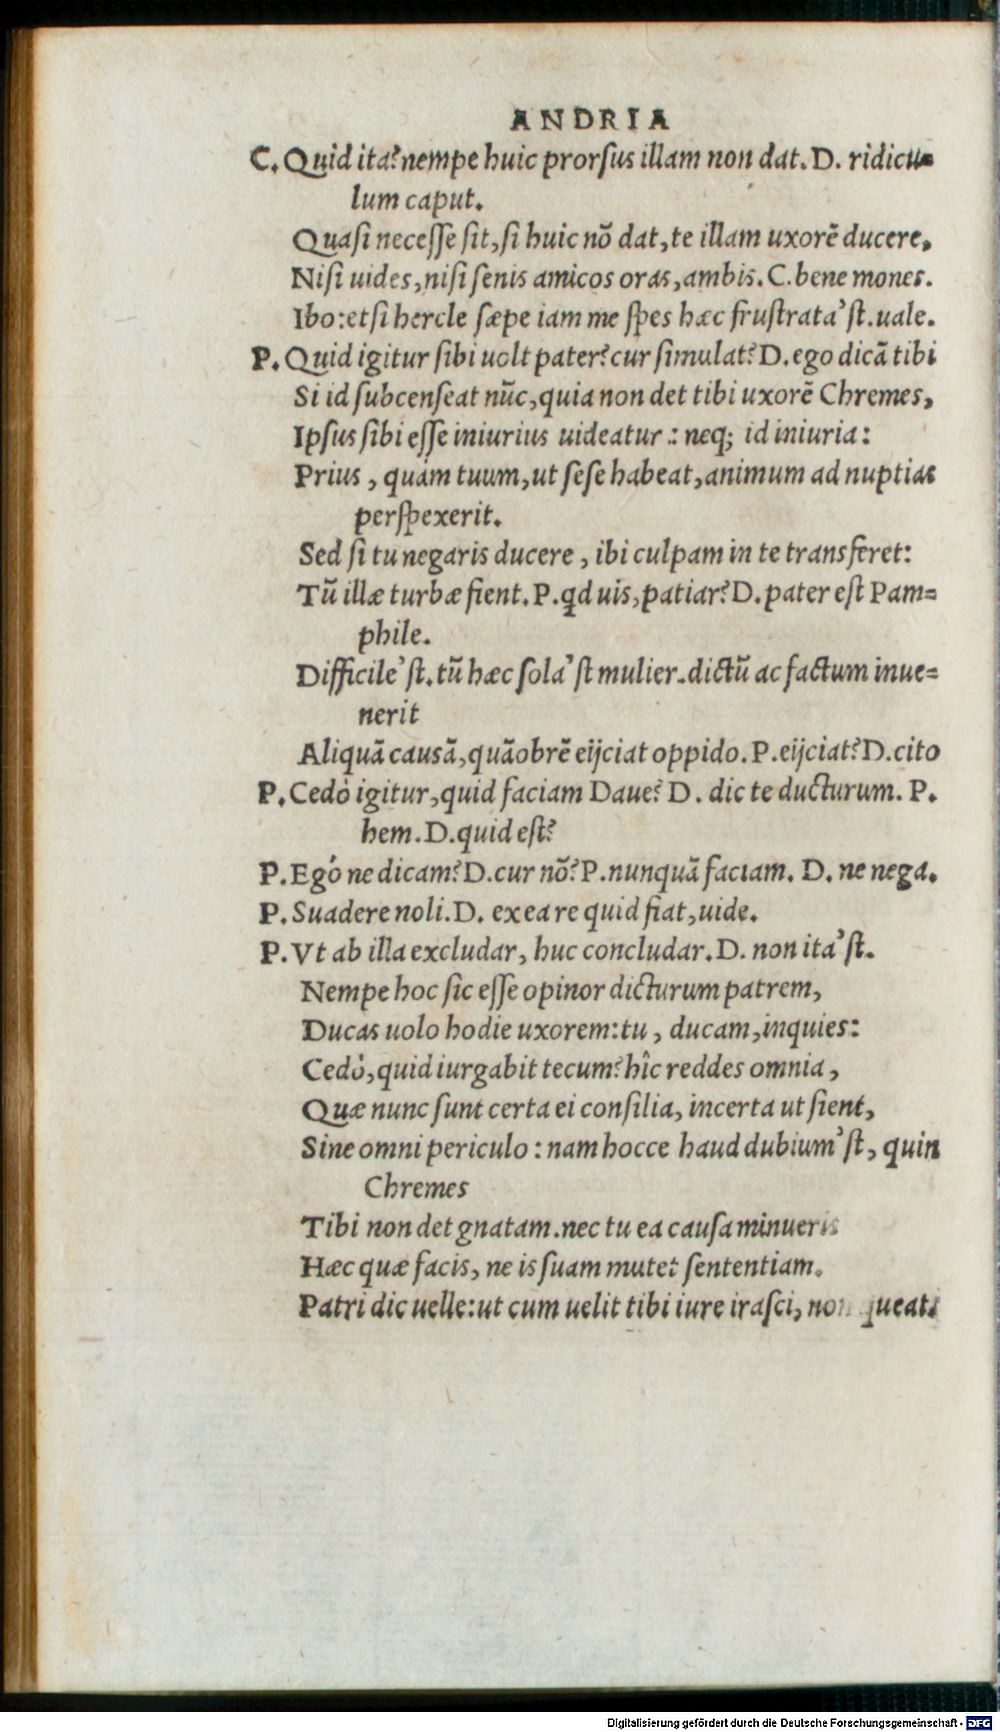 ANDRIA
C. Quid ita? nempe huic prorſus illam non dat. D. ridicu=
lum caput.
Quaſi neceſſe ſit, ſi huic nõ dat, te illam uxorẽ ducere,
Niſi uides, niſi ſenis amicos oras, ambis. C. bene mones.
Ibo: etſi hercle ſæpe iam me ſpes hæc fruſtrata'ſt. uale.
P. Quid igitur ſibi uolt pater? cur ſimulat? D. ego dicã tibi
Si id ſubcenſeat nũc, quia non det tibi uxorẽ Chremes,
Ipſus ſibi eſſe iniurius uideatur: neq; id iniuria:
Prius, quàm tuum, ut ſeſe habeat, animum ad nuptias
perſpexerit.
Sed ſi tu negaris ducere, ibi culpam in te transferet:
Tũ illæ turbæ fient. P. qd uis, patiar? D. pater eſt Pam=
phile.
Difficile'ſt. tũ hæc ſola'ſt mulier. dictũ ac factum inue=
nerit
Aliquã causã, quãobrẽ eijciat oppido. P. eijciat? D. cito
P. Cedò igitur, quid faciam Daue? D. dic te ducturum. P.
hem. D. quid eſt?
P. Egó ne dicam? D. cur nõ? P. nunquã faciam. D. ne nega.
P. Suadere noli. D. ex ea re quid fiat, uide.
P. Vt ab illa excludar, huc concludar. D. non ita'ſt.
Nempe hoc ſic eſſe opinor dicturum patrem,
Ducas uolo hodie uxorem: tu, ducam, inquies:
Cedò, quid iurgabit tecum? hîc reddes omnia,
Quæ nunc ſunt certa ei conſilia, incerta ut ſient,
Sine omni periculo: nam hocce haud dubium'ſt, quin
Chremes
Tibi non det gnatam. nec tu ea cauſa minueris
Hæc quæ facis, ne is ſuam mutet ſententiam.
Patri dic uelle: ut cum uelit tibi iure iraſci, non queat.
Digitalisierung gefördert durch die Deutsche Forschungsgemeinschaft - DFG